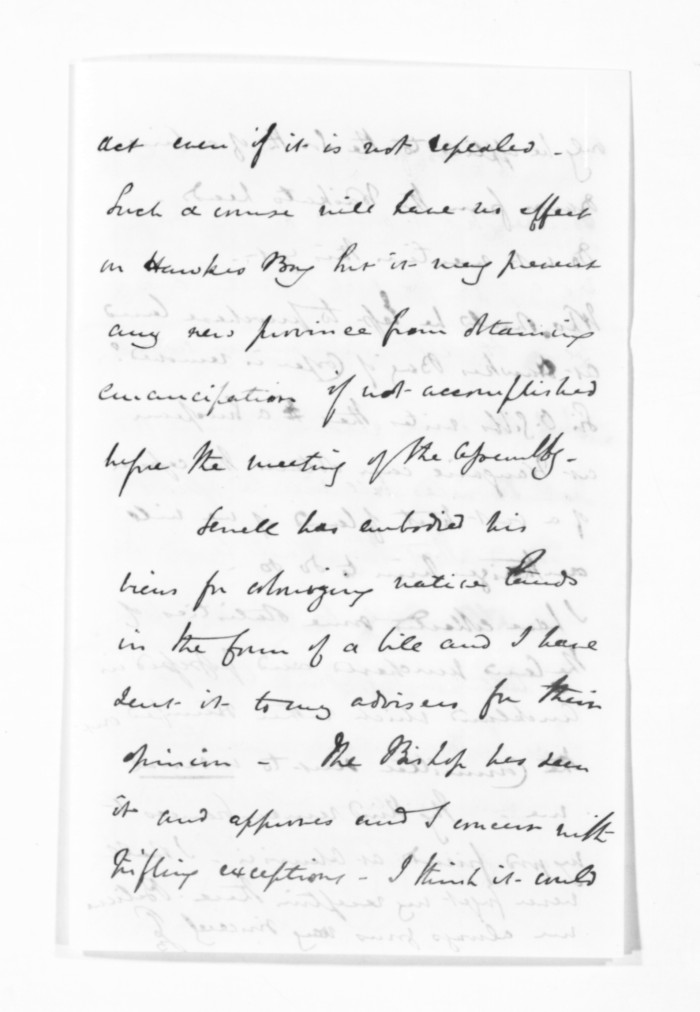 act even if it is not repealed -
Such a course will have no effect
on Hawkes Bay but it may prevent
any new province from obtaining
emancipation if not accomplished
before the meeting of the Assembly -
Sewell has embodied his
views for colonizing native lands
in the form of a bill and I have
sent it to my advisers for their
opinion - The Bishop has seen
it and approves and I concur with
trifling exceptions - I think it could